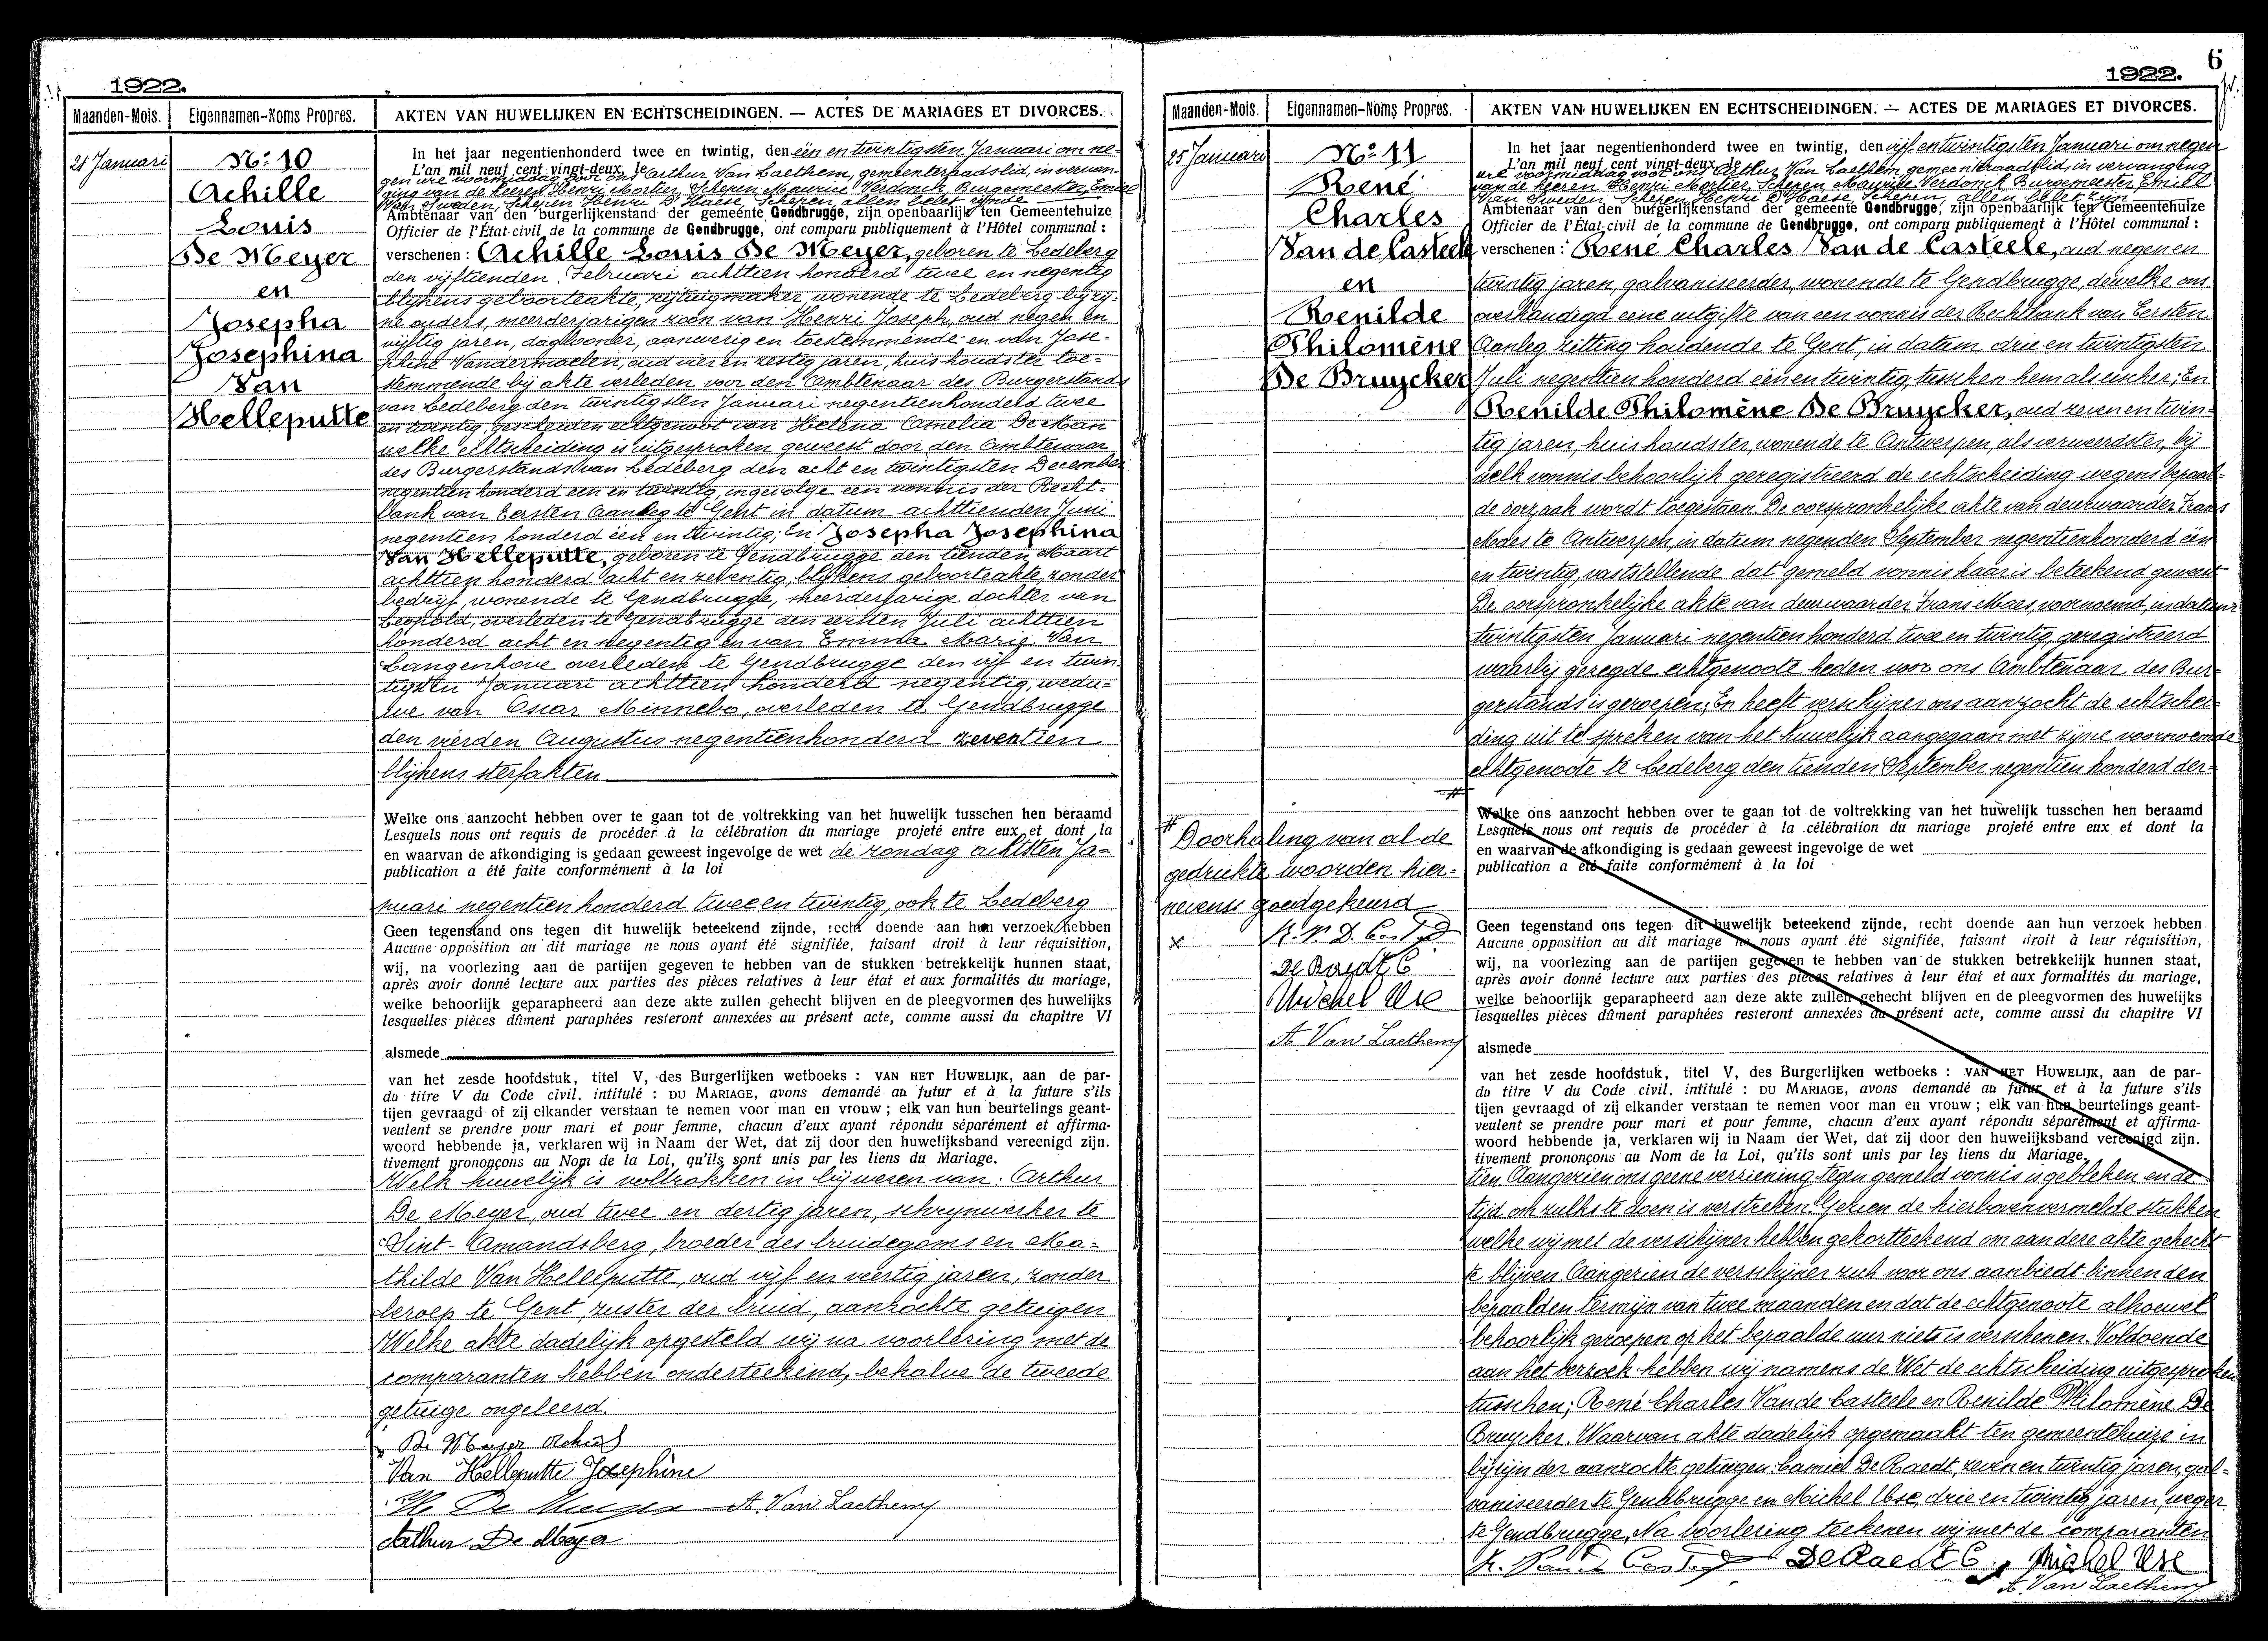 1922.
Maanden-Mois.
Eigennamen-Noms Propres.
AKTEN VAN HUWELIJKEN EN ECHTSCHEIDINGEN. — ACTES DE MARIAGES ET DIVORCES.
21 Januari
No 10
Achille
Louis
De Meyer
en
Josepha
Josephina
Van
Helleputte
In het jaar negentienhonderd twee en twintig, den één en twintigsten Januari om ne-
L'an mil neuf cent vingt-deux, le
gen ure voormiddag voor ons Arthur Van Laethem, gemeenteraadslid, in vervan-
ging van de heeren Henri Mortier, Schepen Maurice Verdonck, Burgemeester, Emiel
Van Sweden, Schepen Henri D'Haese, Schepen, allen belet zijnde
Ambtenaar van den burgerlijkenstand der gemeente Gendbrugge, zijn openbaarlijk ten Gemeentehuize
Officier de l'État-civil de la commune de Gendbrugge, ont comparu publiquement à l'Hôtel communal :
verschenen : Achille Louis De Meyer, geboren te Ledeberg
den vijftienden Februari achttien honderd twee en negentig
blijkens geboorteakte, rijtuigmaker, wonende te Ledeberg bij zij-
ne ouders, meerderjarigen zoon van Henri Joseph, oud negen en
vijftig jaren, dagloonder, aanwezig en toestemmende en van Jose-
phine Vandermaelen, oud vier en zestig jaren, huishoudster toe-
stemmende bij akte verleden voor den Ambtenaar des Burgerstands
van Ledeberg den twintigsten Januari negentienhonderd twee
en twintig, gescheiden echtgenoot van Helena Camelia De Man
welke echtscheiding is uitgesproken geweest door den Ambtenaar
des Burgerstands van Ledeberg den acht en twintigsten December
negentien honderd een en twintig, ingevolge een vonnis der Recht-
bank van Eersten Aanleg te Gent in datum achttienden Juni
negentien honderd één en twintig; En Josepha Josephina
Van Helleputte, geboren te Gendbrugge den tienden Maart
achttien honderd acht en zeventig, blijkens geboorteakte, zonder
bedrijf, wonende te Gendbrugge, meerderjarige dochter van
Leopold, overleden te Gendbrugge den eersten Juli achttien
honderd acht en negentig en van Emma Marie Van
Langenhove overleden te Gendbrugge den vijf en twin-
tigsten Januari achttien honderd negentig, wedu-
we van Oscar Minnebo, overleden te Gendbrugge
den vierden Augustus negentienhonderd zeventien
blijkens sterfakten
Welke ons aanzocht hebben over te gaan tot de voltrekking van het huwelijk tusschen hen beraamd
Lesquels nous ont requis de procéder à la célébration du mariage projeté entre eux et dont la
en waarvan de afkondiging is gedaan geweest ingevolge de wet de zondag achtsten Ja-
publication a été faite conformément à la loi
nuari negentien honderd twee en twintig, ook te Ledeberg
Geen tegenstand ons tegen dit huwelijk beteekend zijnde, recht doende aan hun verzoek hebben
Aucune opposition au dit mariage ne nous ayant été signifiée, faisant droit à leur réquisition,
wij, na voorlezing aan de partijen gegeven te hebben van de stukken betrekkelijk hunnen staat,
après avoir donné lecture aux parties des pièces relatives à leur état et aux formalités du mariage,
welke behoorlijk geparapheerd aan deze akte zullen gehecht blijven en de pleegvormen des huwelijks
lesquelles pièces dûment paraphées resteront annexées au présent acte, comme aussi du chapitre VI
alsmede
van het zesde hoofdstuk, titel V, des Burgerlijken wetboeks : VAN HET HUWELIJK, aan de par-
du titre V du Code civil, intitulé : DU MARIAGE, avons demandé au futur et à la future s'ils
tijen gevraagd of zij elkander verstaan te nemen voor man en vrouw ; elk van hun beurtelings geant-
veulent se prendre pour mari et pour femme, chacun d'eux ayant répondu séparément et affirma-
woord hebbende ja, verklaren wij in Naam der Wet, dat zij door den huwelijksband vereenigd zijn.
tivement prononçons au Nom de la Loi, qu'ils sont unis par les liens du Mariage.
Welk huwelijk is voltrokken in bijwezen van: Arthur
De Meyer, oud twee en dertig jaren, schrijnwerker te
Sint-Amandsberg, broeder des bruidegoms en Ma-
thilde Van Helleputte, oud vijf en veertig jaren, zonder
beroep te Gent, zuster der bruid, aanzochte getuigen
Welke akte dadelijk opgesteld wij na voorlezing met de
comparanten hebben onderteekend, behalve de tweede
getuige ongeleerd.
De Meyer Achiel
Van Helleputte Josephine
De Meyer A. Van Laethem
Arthur De Meyer
6
1922.
Maanden-Mois.
Eigennamen-Noms Propres.
AKTEN VAN HUWELIJKEN EN ECHTSCHEIDINGEN. — ACTES DE MARIAGES ET DIVORCES.
25 Januari
No 11
René
Charles
Van de Casteele
en
Renilde
Philomène
De Bruycker
# Doorhaling van al de
gedrukte woorden hier-
nevens goedgekeurd
De Raedt C
Michel Use
A. Van Laethem
In het jaar negentienhonderd twee en twintig, den vijf en twintigsten Januari om negen
L'an mil neuf cent vingt-deux, le
ure voormiddag voor ons Arthur Van Laethem gemeenteraadslid, in vervanging
van de heeren Henri Mortier, Schepen, Maurice Verdonck Burgemeester Emiel
Van Sweden Schepen Henri D'Haese, Schepen, allen belet zijn
Ambtenaar van den burgerlijkenstand der gemeente Gendbrugge, zijn openbaarlijk ten Gemeentehuize
Officier de l'État-civil de la commune de Gendbrugge, ont comparu publiquement à l'Hôtel communal :
verschenen : René Charles Van de Casteele, oud negen en
twintig jaren, galvaniseerder, wonende te Gendbrugge dewelke ons
overhandigd eene uitgifte van een vonnis der Rechtbank van Eersten
Aanleg zitting houdende te Gent, in datum drie en twintigsten
Juli negentien honderd één en twintig, tusschen hem als eischer; En
Renilde Philomène De Bruycker, oud zeven en twin-
tig jaren, huishoudster, wonende te Antwerpen, als verweerster, bij
welk vonnis behoorlijk geregistreerd de echtscheiding wegens bepaal-
de oorzaak wordt toegestaan. De oorspronkelijke akte van deurwaarder Frans
Maes te Antwerpen, in datum negenden September negentienhonderd één
en twintig, vaststellende dat gemeld vonnis haar is beteekend geweest
De oorspronkelijke akte van deurwaarder Frans Maes, voornoemd, in datum
twintigsten Januari negentien honderd twee en twintig, geregistreerd
waarbij gezegde echtgenoote heden voor ons Ambtenaar des Bur-
gerstands is geroepen; En heeft verschijner ons aanzocht de echtschei-
ding uit te spreken van het huwelijk aangegaan met zijne voornoemde
echtgenoote te Ledeberg den tienden September negentien honderd der-
#
Welke ons aanzocht hebben over te gaan tot de voltrekking van het huwelijk tusschen hen beraamd
Lesquels nous ont requis de procéder à la célébration du mariage projeté entre eux et dont la
en waarvan de afkondiging is gedaan geweest ingevolge de wet
publication a été faite conformément à la loi
Geen tegenstand ons tegen dit huwelijk beteekend zijnde, recht doende aan hun verzoek hebben
Aucune opposition au dit mariage ne nous ayant été signifiée, faisant droit à leur réquisition,
wij, na voorlezing aan de partijen gegeven te hebben van de stukken betrekkelijk hunnen staat,
après avoir donné lecture aux parties des pièces relatives à leur état et aux formalités du mariage,
welke behoorlijk geparapheerd aan deze akte zullen gehecht blijven en de pleegvormen des huwelijks
lesquelles pièces dûment paraphées resteront annexées au présent acte, comme aussi du chapitre VI
alsmede
van het zesde hoofdstuk, titel V, des Burgerlijken wetboeks : VAN HET HUWELIJK, aan de par-
du titre V du Code civil, intitulé : DU MARIAGE, avons demandé au futur et à la future s'ils
tijen gevraagd of zij elkander verstaan te nemen voor man en vrouw ; elk van hun beurtelings geant-
veulent se prendre pour mari et pour femme, chacun d'eux ayant répondu séparément et affirma-
woord hebbende ja, verklaren wij in Naam der Wet, dat zij door den huwelijksband vereenigd zijn.
tivement prononçons au Nom de la Loi, qu'ils sont unis par les liens du Mariage.
tien Aangezien ons geene verziening tegen gemeld vonnis is gebleken en de
tijd om zulks te doen is verstreken. Gezien de hierbovenvermelde stukken
welke wij met de verschijner hebben gekortteekend om aan deze akte gehecht
te blijven. Aangezien de verschijner zich voor ons aanbiedt binnen den
bepaalden termijn van twee maanden en dat de echtgenoote alhoewel
behoorlijk geroepen op het bepaalde uur niet is verschenen. Voldoende
aan het verzoek hebben wij namens de Wet de echtscheiding uitgesproken
tusschen; René Charles Van de Casteele en Renilde Philomène De
Bruycker. Waarvan akte dadelijk opgemaakt ten gemeentehuize in
bijzijn der aanzochte getuigen: Camiel De Raedt, zeven en twintig jaren, gal-
vaniseerder te Gendbrugge en Michel Use, drie en twintig jaren, weger
te Gendbrugge, Na voorlezing teekenen wij met de comparanten
De Raedt C. Michel Use
A. Van Laethem